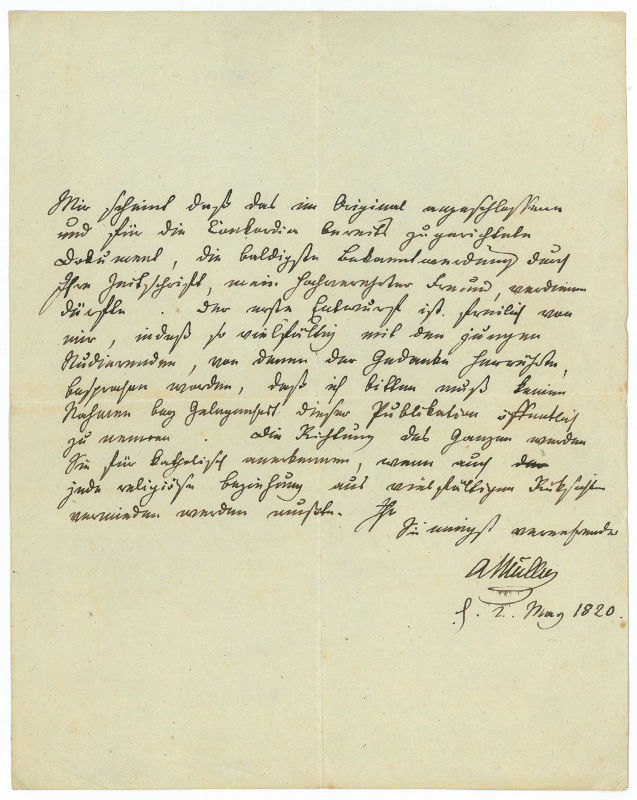 Mir scheint daß das im Original angeschlossene
und für die Concordia bereits zugerichtete
Dokument, die baldigste Bekanntwerdung durch
Ihre Zeitschrift, mein hochverehrter Freund, verdienen
dürfte. Der erste Entwurf ist freilich von
mir, indeß so vielfältig mit den jungen
Studierenden, von denen der Gedanke herrührte,
besprochen worden, daß ich bitten muß keinen
Nahmen bey Gelegenheit dieser Publikation öffentlich
zu nennen. Die Richtung des Ganzen werden
Sie für katholisch anerkennen, wenn auch
jede religiöse Beziehung aus vielfältigen Rücksichten
vermieden werden mußte. Ihr
Sie innigst verehrender
AMüller
2. May 1820.